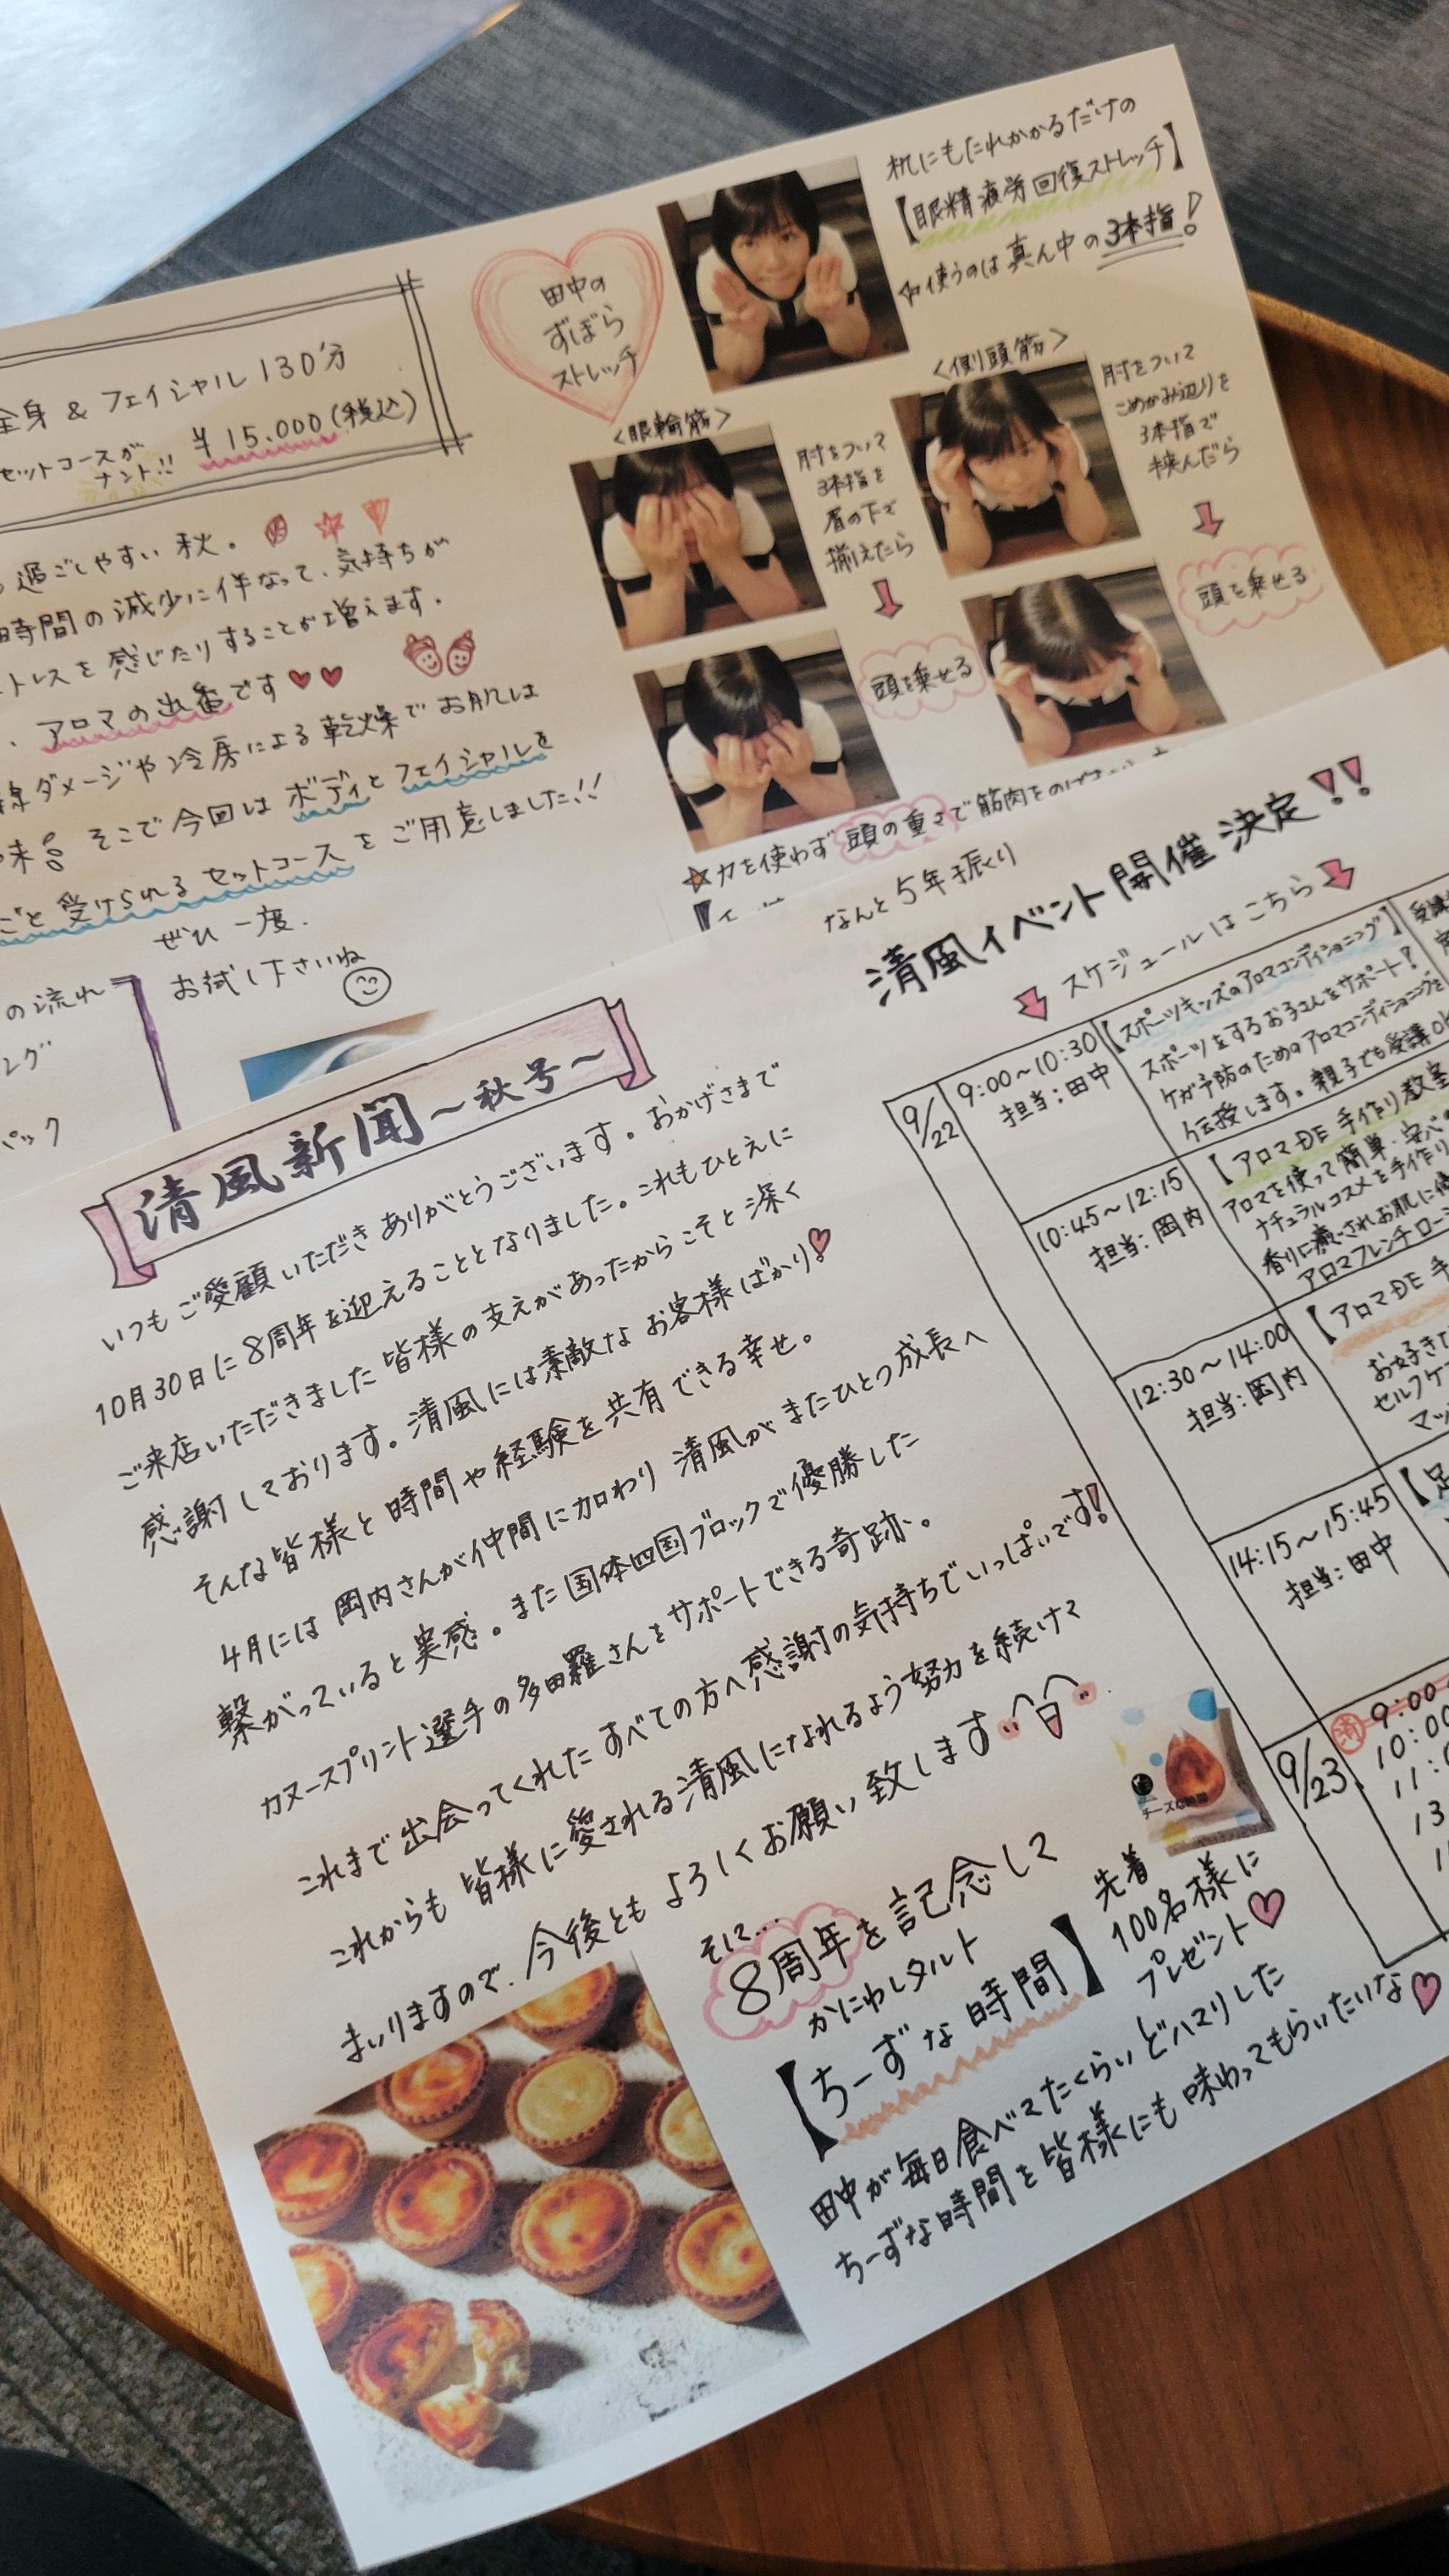 全身 & フェイシャル 130分
セットコースが
ナント!!
¥15.000(税込)
過ごしやすい秋。
時間の減少に伴なって、気持ちが
トレスを感じたりすることが増えます。
、アロマの出番です
線ダメージや冷房による乾燥でお肌は
味 そこで今回はボディとフェイシャルを
ごと受けられるセットコースをご用意しました!!
ぜひ一度、
お試し下さいね
の流れ
ング
パック
田中の
ずぼら
ストレッチ
机にもたれかかるだけの
【眼精疲労回復ストレッチ】
使うのは真ん中の3本指!
<眼輪筋>
肘をついて
3本指を
眉の下で
揃えたら
頭を乗せる
<側頭筋>
肘をついて
こめかみ辺りを
3本指で
挟んだら
頭を乗せる
☆力を使わず頭の重さで筋肉をのばす
清風新聞〜秋号〜
いつもご愛顧いただきありがとうございます。おかげさまで
10月30日に8周年を迎えることとなりました。これもひとえに
ご来店いただきました皆様の支えがあったからこそと深く
感謝しております。清風には素敵なお客様ばかり
そんな皆様と時間や経験を共有できる幸せ。
4月には岡内さんが仲間に加わり清風がまたひとつ成長へ
繋がっていると実感。また国体四国ブロックで優勝した
カヌースプリント選手の多田羅さんをサポートできる奇跡。
これまで出会ってくれたすべての方へ感謝の気持ちでいっぱいです!
これからも皆様に愛される清風になれるよう努力を続けて
まいりますので、今後ともよろしくお願い致します
そして…
8周年を記念して
かにわしタルト
【ちーずな時間】
先着
100名様に
プレゼント
田中が毎日食べてたくらいどハマりした
ちーずな時間を皆様にも味わってもらいたいな
なんと5年振り
清風イベント開催決定!!
スケジュールはこちら
9/22
9:00〜10:30
担当:田中
【スポーツキッズのアロマコンディショニング】
スポーツをするお子さんをサポート!
ケガ予防のためのアロマコンディショニングを
伝授します。親子でも受講OK
10:45〜12:15
担当:岡内
【アロマDE手作り教室
アロマを使って簡単・安心の
ナチュラルコスメを手作り
香りに癒されお肌に
アロマフレンチロー
12:30〜14:00
担当:岡内
【アロマDE手
お好きな
セルフケア
マッ
14:15〜15:45
担当:田中
【足
9/23
済
9:00
10:00
11:
13